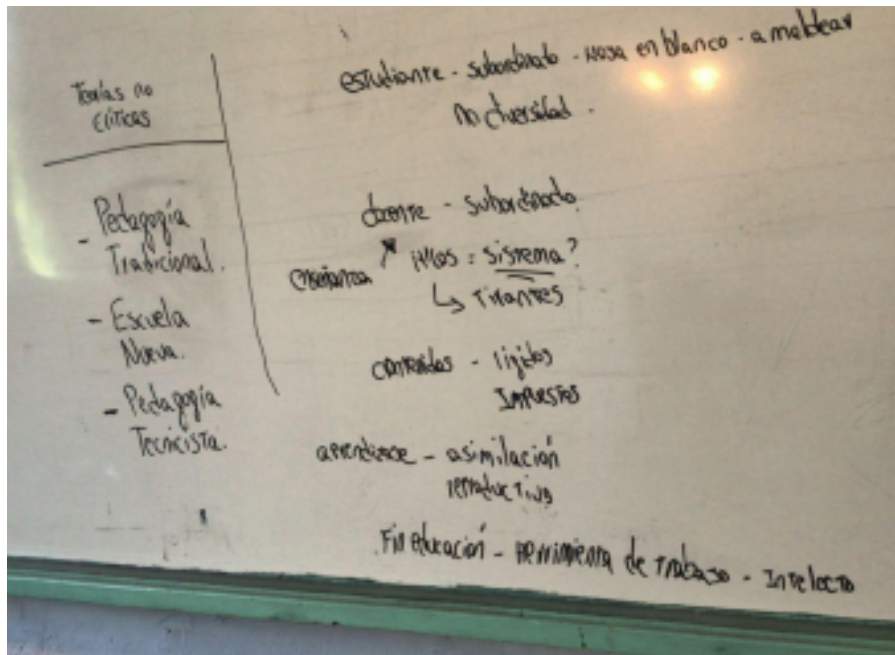 Teorías no
críticas
- Pedagogía
Tradicional.
- Escuela
Nueva.
- Pedagogía
Tecnicista.
estudiante - subordinado - Hoja en blanco - a moldear
no diversidad.
docente - subordinado
enseñanza
Hilos = sistema?
↳ Tirantes
contenidos - rígidos
Impuestos
aprendizaje - asimilación
reproductivo
Fin educación - herrimienta de trabajo - Intelecto